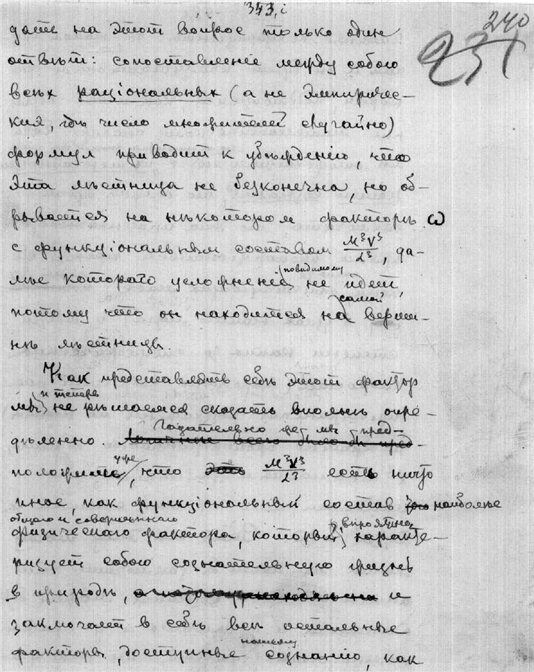 343,i
240
237
дать на этот вопрос только один
отвѣтъ: сопоставленіе между собою
всѣхъ раціональныхъ (а не эмпиричес-
кия, гдѣ число множителей случайно)
формул приводит к убѣжденію, что
эта лѣстница не безконечна, но об-
рывается на нѣкотором факторѣ ω
с функціональным составом M³V³/L³, да-
лѣе котораго усложненіе, повидимому, не идет,
потому что он находится на самой верши-
нѣ лѣстницы.
Как представлять себѣ этот фактор
мы и теперь не рѣшаемся сказать вполнѣ опре-
дѣленно. Гадательно же мы пред-
положим, что M³V³/L³ есть ничто
иное, как функціональный состав наиболѣе
общаго и совершеннаго
физическаго фактора, который, вѣроятно, характе-
ризует собою сознательную жизнь
в природѣ, и
заключает в себѣ всѣ остальные
факторы, доступные нашему сознанію, как